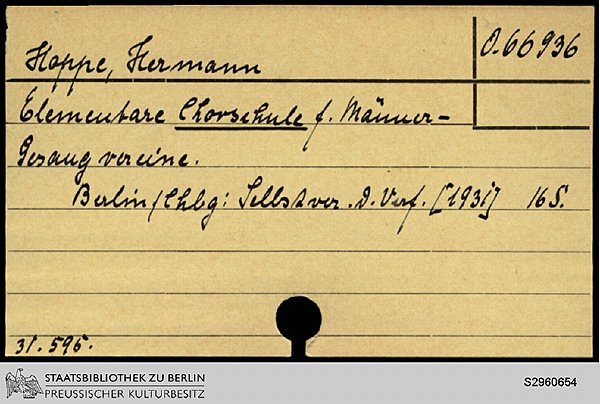 Hoppe, Hermann
O.66936
Elementare Chorschule f. Männer-
Gesangvereine.
Berlin/Chbg: Selbstver. d. Verf. [1931] 16 S.
31.595.
STAATSBIBLIOTHEK ZU BERLIN
PREUSSISCHER KULTURBESITZ
S2960654